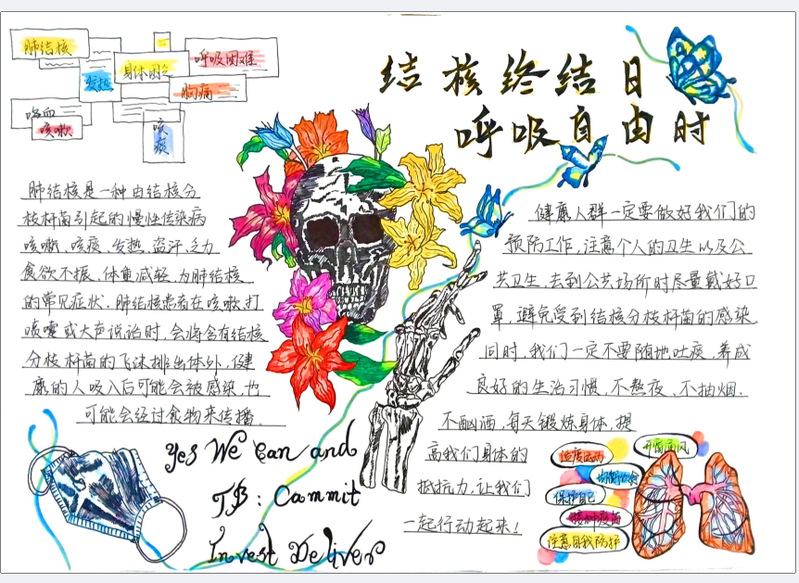 肺结核
呼吸困难
发热
身体困乏
胸痛
咯血
咳嗽
咳痰
结核终结日
呼吸自由时
肺结核是一种由结核分
枝杆菌引起的慢性传染病
咳嗽、咳痰、发热、盗汗、乏力
食欲不振、体重减轻,为肺结核
的常见症状,肺结核患者在咳嗽、打
喷嚏或大声说话时,会将含有结核
分枝杆菌的飞沫排出体外,健
康的人吸入后可能会被感染,也
可能会经过食物来传播.
健康人群一定要做好我们的
预防工作,注意个人的卫生以及公
共卫生,去到公共场所时尽量戴好口
罩,避免受到结核分枝杆菌的感染
同时,我们一定不要随地吐痰,养成
良好的生活习惯,不熬夜、不抽烟、
不酗酒,每天锻炼身体,提
高我们身体的
抵抗力,让我们
一起行动起来!
Yes We Can and
TB: Commit
Invest Deliver
适度运动
开窗通风
均衡饮食
保护自己
接种疫苗
注意自我防护